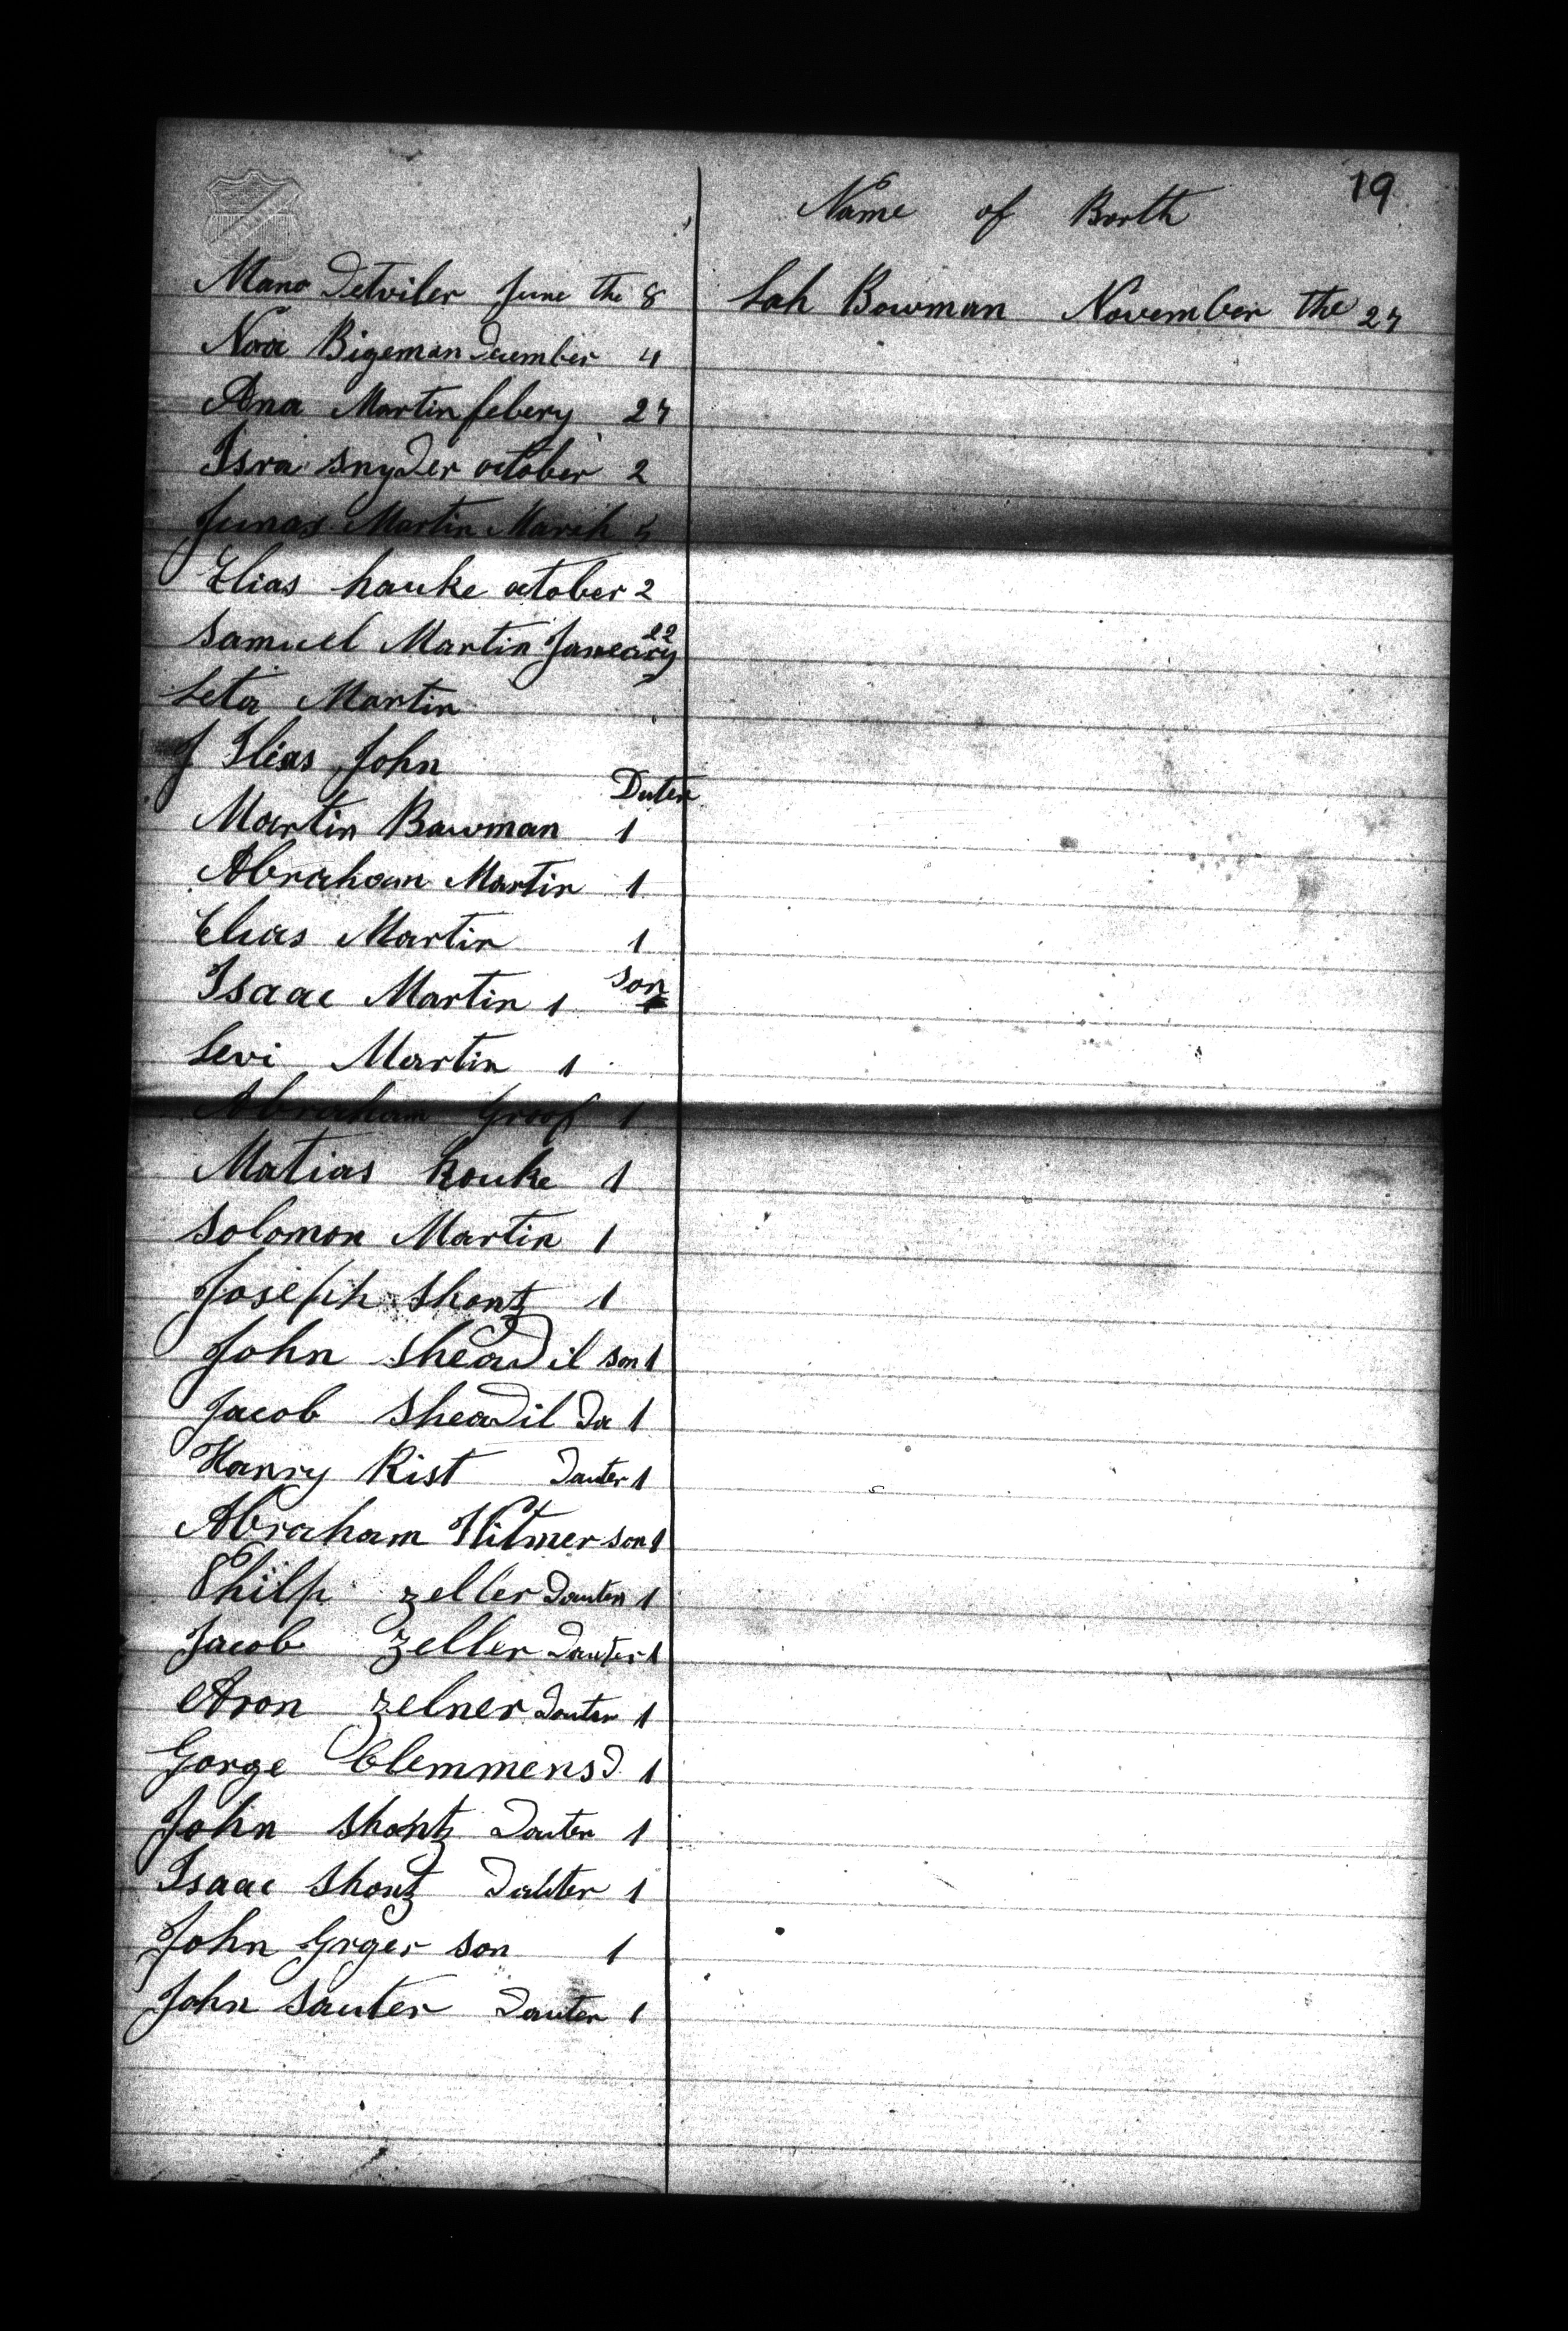 19
Name of Borth
Mano Detviler June the 8
Noa Bigeman December 4
Ana Martin febery 27
Isra snyder october 2
Junas Martin March 5
Elias hauke october 2
Samuel Martin Janeary 22
Leta Martin
J Ilias John
Duter
Martin Bawman 1
Abraham Martin 1
Elias Martin 1
Isaac Martin 1 son
Levi Martin 1
Abraham Groof 1
Matias houke 1
Solomon Martin 1
Joseph Shantz 1
John Sheadil son 1
Jacob Sheadil Da 1
Hanry Rist Dauter 1
Abraham Witmer son 1
Philp zeller Dauter 1
Jacob zeller Dauter 1
Aron zelner Dauter 1
Gorge Clemmens D. 1
John Shantz Dauter 1
Isaac Shantz Dahter 1
John Grger son 1
John Sauter Dauter 1
Lah Bowman November the 27